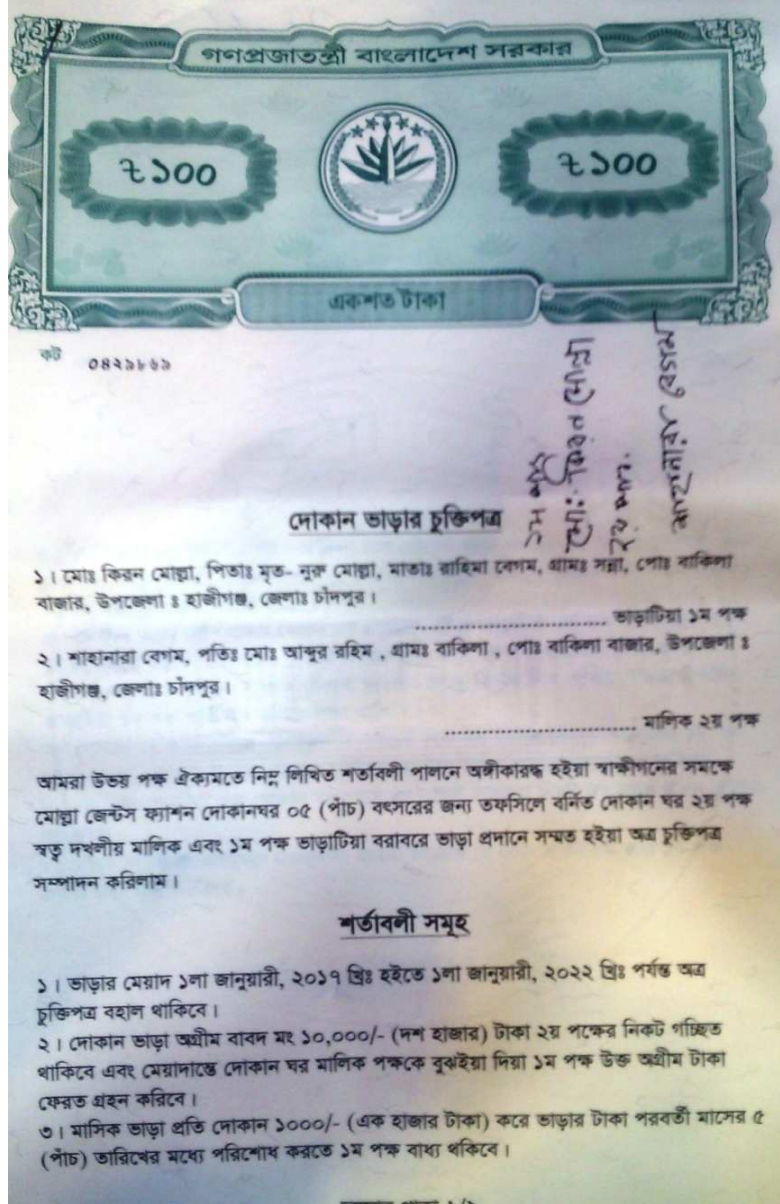 গণপ্রজাতন্ত্রী বাংলাদেশ সরকার
৳ ১০০
৳ ১০০
একশত টাকা
কট ০৪২৯৮৬৯
১ম পক্ষ
মো: কিরন মোল্লা
২য় পক্ষ.
শাহানারা বেগম
দোকান ভাড়ার চুক্তিপত্র
১। মোঃ কিরন মোল্লা, পিতাঃ মৃত- নুরু মোল্লা, মাতাঃ রাহিমা বেগম, গ্রামঃ সন্না, পোঃ বাকিলা
বাজার, উপজেলা ঃ হাজীগঞ্জ, জেলাঃ চাঁদপুর।
................................ ভাড়াটিয়া ১ম পক্ষ
২। শাহানারা বেগম, পতিঃ মোঃ আব্দুর রহিম , গ্রামঃ বাকিলা , পোঃ বাকিলা বাজার, উপজেলা ঃ
হাজীগঞ্জ, জেলাঃ চাঁদপুর।
................................ মালিক ২য় পক্ষ
আমরা উভয় পক্ষ ঐক্যমতে নিম্ন লিখিত শর্তাবলী পালনে অঙ্গীকারদ্ধ হইয়া স্বাক্ষীগনের সমক্ষে
মোল্লা জেন্টস ফ্যাশন দোকানঘর ০৫ (পাঁচ) বৎসরের জন্য তফসিলে বর্নিত দোকান ঘর ২য় পক্ষ
স্বত্ব দখলীয় মালিক এবং ১ম পক্ষ ভাড়াটিয়া বরাবরে ভাড়া প্রদানে সম্মত হইয়া অত্র চুক্তিপত্র
সম্পাদন করিলাম।
শর্তাবলী সমূহ
১। ভাড়ার মেয়াদ ১লা জানুয়ারী, ২০১৭ খ্রিঃ হইতে ১লা জানুয়ারী, ২০২২ খ্রিঃ পর্যন্ত অত্র
চুক্তিপত্র বহাল থাকিবে।
২। দোকান ভাড়া অগ্রীম বাবদ মং ১০,০০০/- (দশ হাজার) টাকা ২য় পক্ষের নিকট গচ্ছিত
থাকিবে এবং মেয়াদান্তে দোকান ঘর মালিক পক্ষকে বুঝইয়া দিয়া ১ম পক্ষ উক্ত অগ্রীম টাকা
ফেরত গ্রহন করিবে।
৩। মাসিক ভাড়া প্রতি দোকান ১০০০/- (এক হাজার টাকা) করে ভাড়ার টাকা পরবর্তী মাসের ৫
(পাঁচ) তারিখের মধ্যে পরিশোধ করতে ১ম পক্ষ বাধ্য থকিবে।